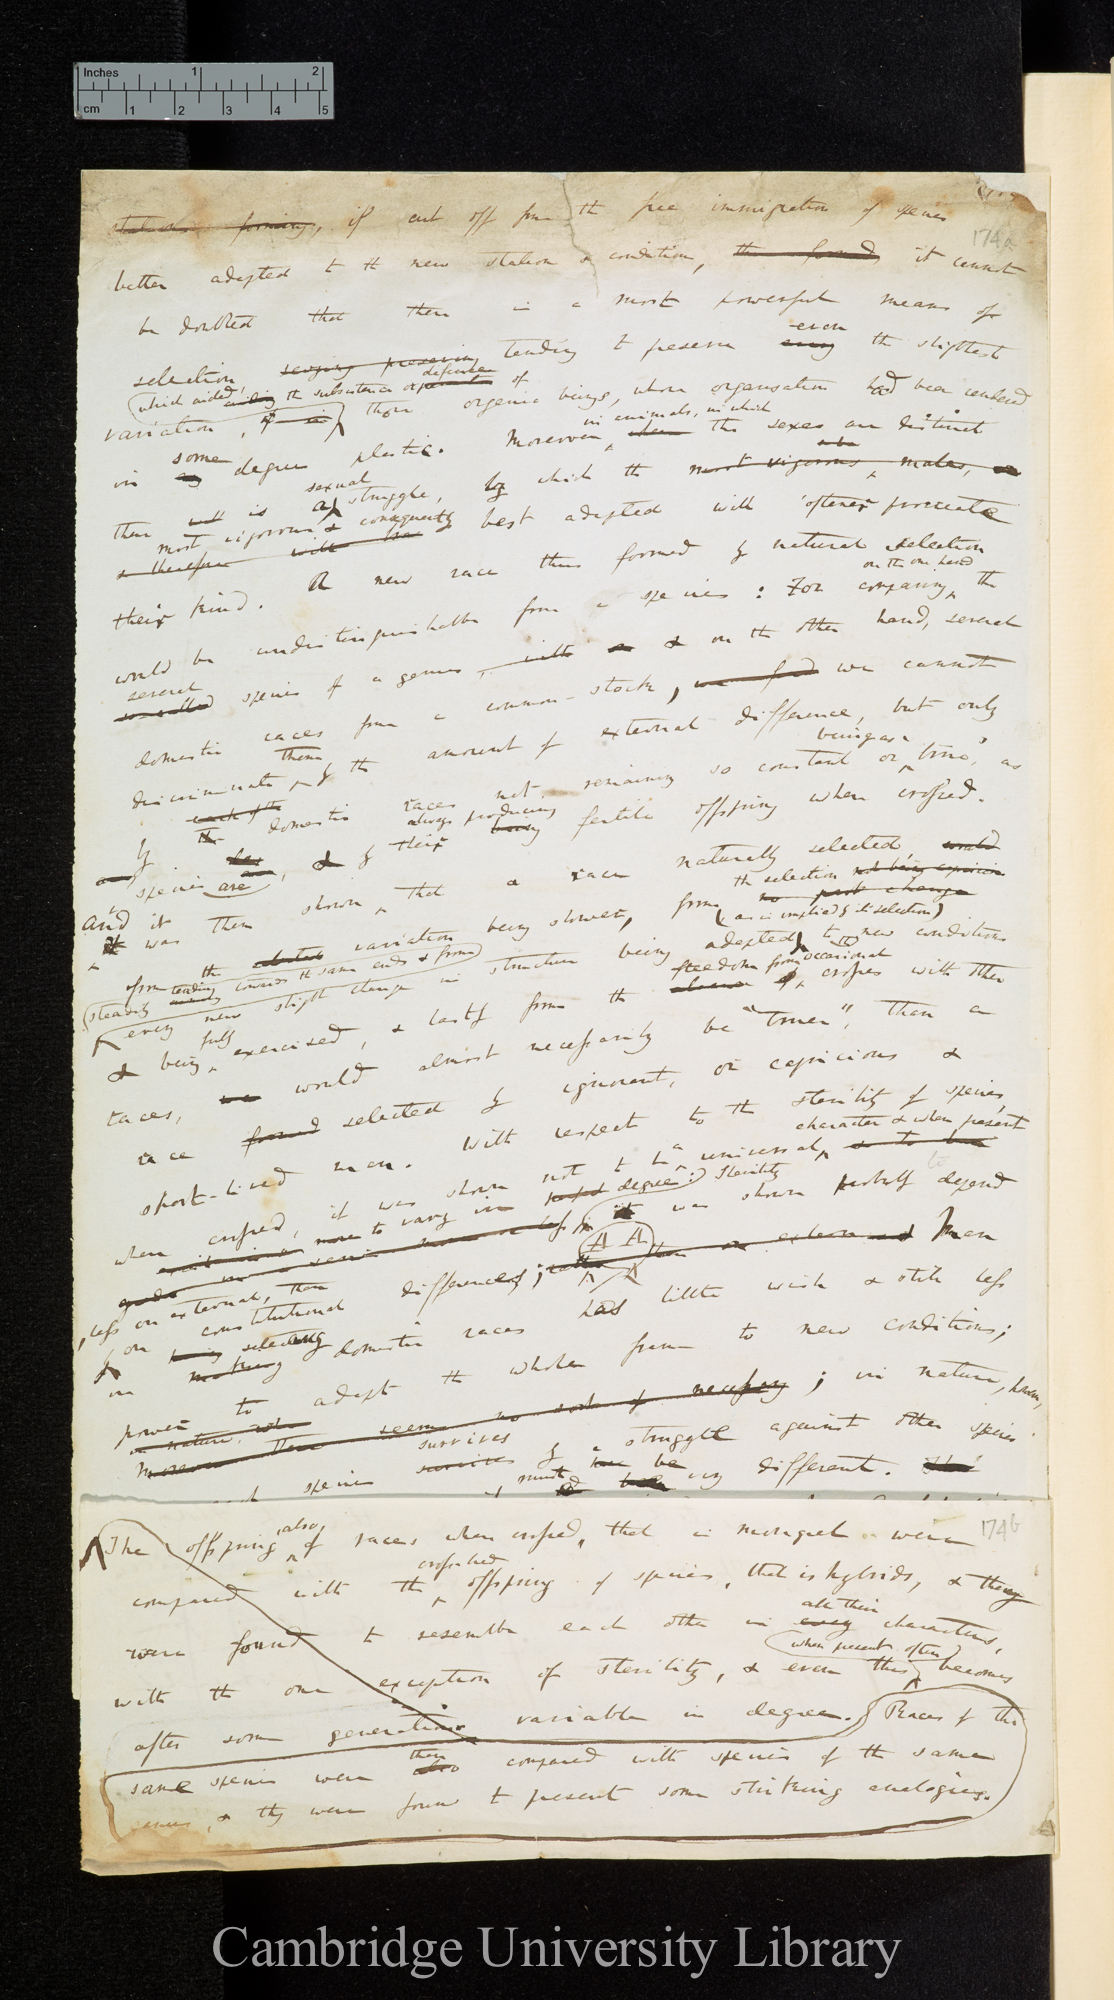 Inches 1 2
cm 1 2 3 4 5
174a
stations forming, if cut off from the free immigration of species
better adapted to the new station & condition, it cannot
be doubted that there is a most powerful means of
even
selection, tending to preserve every the slightest
defective
(which aided the subsistence or of
variation, those organic beings, whose organisation had been rendered
in animals, in which
in some degree plastic. Moreover, when the sexes are distinct
sexual
there is a struggle, by which the most vigorous males,
most vigorous & consequently best adapted will oftener procreate
& therefore will be
their kind. A new race thus formed by natural selection
on the one hand
would be undistinguishable from a species: For comparing, the
several
so-called species of a genus, with & on the other hand, several
domestic races from a common-stock, we cannot
them
discriminate by the amount of external difference, but only
being as
each of the
by the domestic races not remaining so constant or "true", as
always producing
species are, & by their being fertile offspring when crossed.
And it was then shown, that a race naturally selected, would
the selection not being capricious
from the variation being slower, from no past change
(as is implied by its selection)
(steadily tending towards the same ends & from
every new slight change in structure being adapted to the new conditions
fully
freedom from occasional
& being exercised, & lastly from the crosses with other
races, would almost necessarily be "truer", than a
race formed selected by ignorant, or capricious &
short-lived man. With respect to the sterility of species,
character & when present
when crossed, it was shown not to be a universal,
more to vary in degree: Sterility
it was shown probably to depend
less on external, than
on constitutional differences; Man
selecting
in making domestic races has little wish & still less
power to adapt the whole frame to new conditions;
in nature, however,
Moreover there seems no sort of necessity; in nature, however,
survives
each species survives by a struggle against other species
must be very different.
174b
also
The offspring of races when crossed, that is mongrels were
cross-bred
compared with the offspring of species, that is hybrids, & they
all their
were found to resemble each other in every characters,
(when present often)
with the one exception of sterility, & even this becomes
after some generations variable in degree. Races of the
then
same species were also compared with species of the same
genus, & they were found to present some striking analogies.
Cambridge University Library